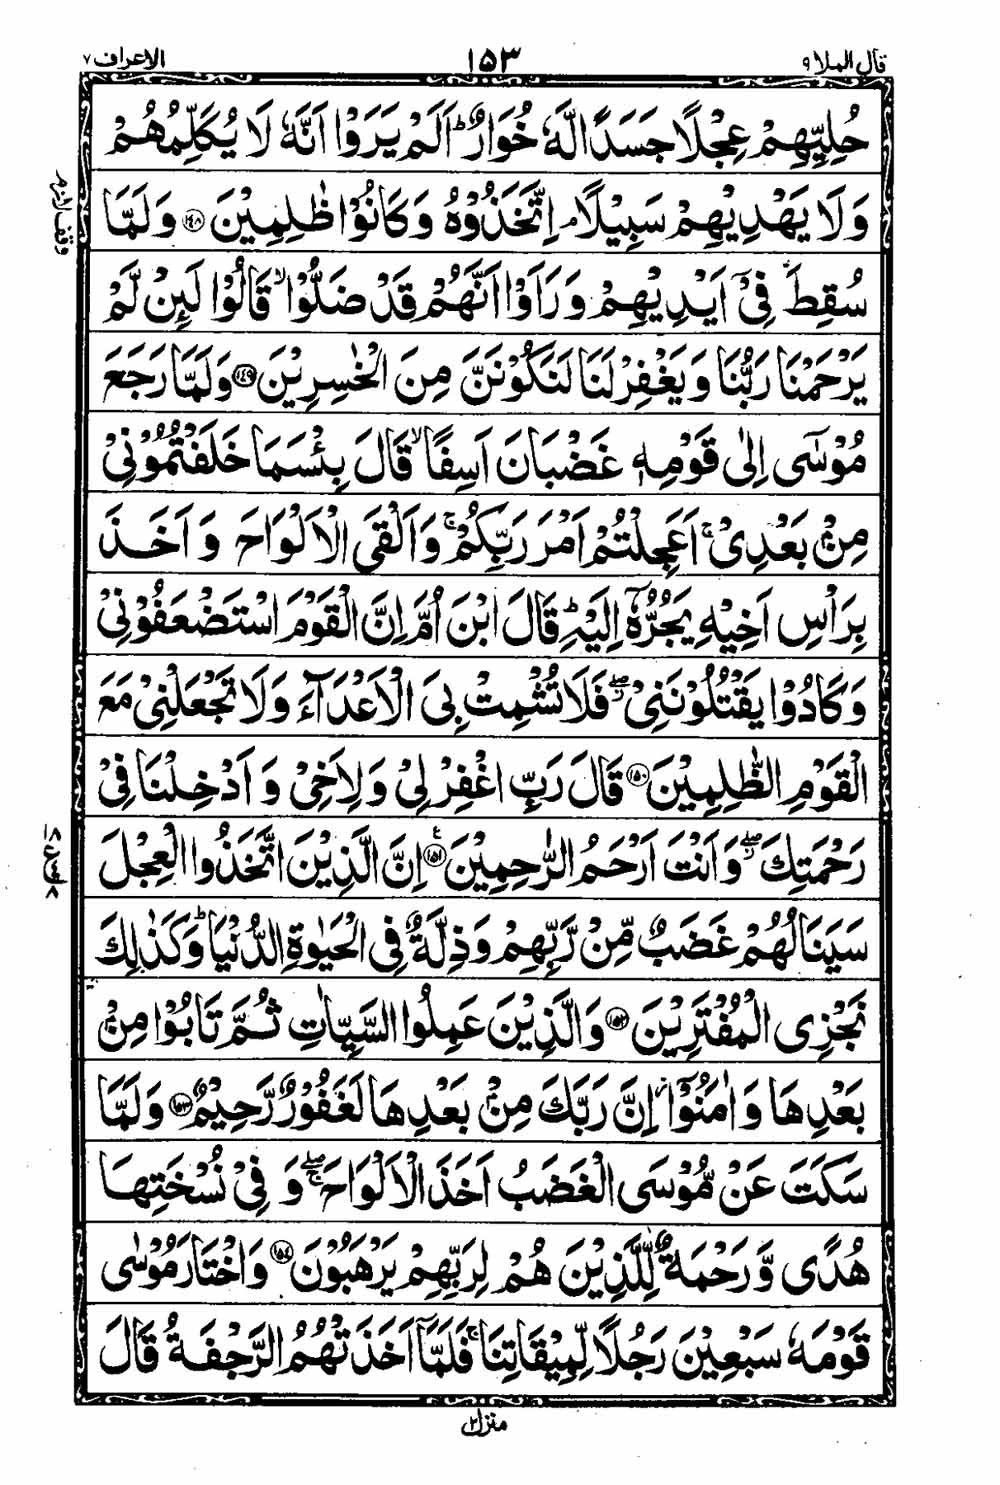 قال الملا ٩ ١٥٣ الاعراف ٧
حُلِيِّهِمْ عِجْلًا جَسَدًا لَّهٗ خُوَارٌ ؕ اَلَمْ يَرَوْا اَنَّهٗ لَا يُكَلِّمُهُمْ
وَلَا يَهْدِيْهِمْ سَبِيْلًا ۘ اِتَّخَذُوْهُ وَكَانُوْا ظٰلِمِيْنَ ﴿۱۴۸﴾ وَلَمَّا
سُقِطَ فِيْۤ اَيْدِيْهِمْ وَرَاَوْا اَنَّهُمْ قَدْ ضَلُّوْا ۙ قَالُوْا لَىِٕنْ لَّمْ
يَرْحَمْنَا رَبُّنَا وَيَغْفِرْ لَنَا لَنَكُوْنَنَّ مِنَ الْخٰسِرِيْنَ ﴿۱۴۹﴾ وَلَمَّا رَجَعَ
مُوْسٰۤى اِلٰى قَوْمِهٖ غَضْبَانَ اَسِفًا ۙ قَالَ بِئْسَمَا خَلَفْتُمُوْنِيْ
مِنْۢ بَعْدِيْ ۚ اَعَجِلْتُمْ اَمْرَ رَبِّكُمْ ۚ وَاَلْقَى الْاَلْوَاحَ وَاَخَذَ
بِرَاْسِ اَخِيْهِ يَجُرُّهٗۤ اِلَيْهِ ؕ قَالَ ابْنَ اُمَّ اِنَّ الْقَوْمَ اسْتَضْعَفُوْنِيْ
وَكَادُوْا يَقْتُلُوْنَنِيْ ۖ فَلَا تُشْمِتْ بِيَ الْاَعْدَآءَ وَلَا تَجْعَلْنِيْ مَعَ
الْقَوْمِ الظّٰلِمِيْنَ ﴿۱۵۰﴾ قَالَ رَبِّ اغْفِرْ لِيْ وَلِاَخِيْ وَاَدْخِلْنَا فِيْ
رَحْمَتِكَ ۖ وَاَنْتَ اَرْحَمُ الرّٰحِمِيْنَ ﴿۱۵۱﴾ اِنَّ الَّذِيْنَ اتَّخَذُوا الْعِجْلَ
سَيَنَالُهُمْ غَضَبٌ مِّنْ رَّبِّهِمْ وَذِلَّةٌ فِي الْحَيٰوةِ الدُّنْيَا ؕ وَكَذٰلِكَ
نَجْزِي الْمُفْتَرِيْنَ ﴿۱۵۲﴾ وَالَّذِيْنَ عَمِلُوا السَّيِّاٰتِ ثُمَّ تَابُوْا مِنْۢ
بَعْدِهَا وَاٰمَنُوْۤا اِنَّ رَبَّكَ مِنْۢ بَعْدِهَا لَغَفُوْرٌ رَّحِيْمٌ ﴿۱۵۳﴾ وَلَمَّا
سَكَتَ عَنْ مُّوْسَى الْغَضَبُ اَخَذَ الْاَلْوَاحَ ۖ وَفِيْ نُسْخَتِهَا
هُدًى وَّرَحْمَةٌ لِّلَّذِيْنَ هُمْ لِرَبِّهِمْ يَرْهَبُوْنَ ﴿۱۵۴﴾ وَاخْتَارَ مُوْسٰى
قَوْمَهٗ سَبْعِيْنَ رَجُلًا لِّمِيْقَاتِنَا ۚ فَلَمَّاۤ اَخَذَتْهُمُ الرَّجْفَةُ قَالَ
منزل ٢
وقف لازم